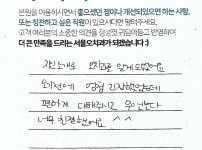 본원을 이용하시면서 좋으셨던 점이나 개선되었으면 하는 사항,
또는 칭찬하고 싶은 직원이 있으시다면 말해주세요.
고객 여러분의 소중한 의견을 장성껏 귀담아듣고 반영하여
더 큰 만족을 드리는 서울오치과가 되겠습니다 :)
지인소개로 알게 되었어요
엄청 긴장했었는데
편하게 대해주시고
너무 친절했어요 ^^